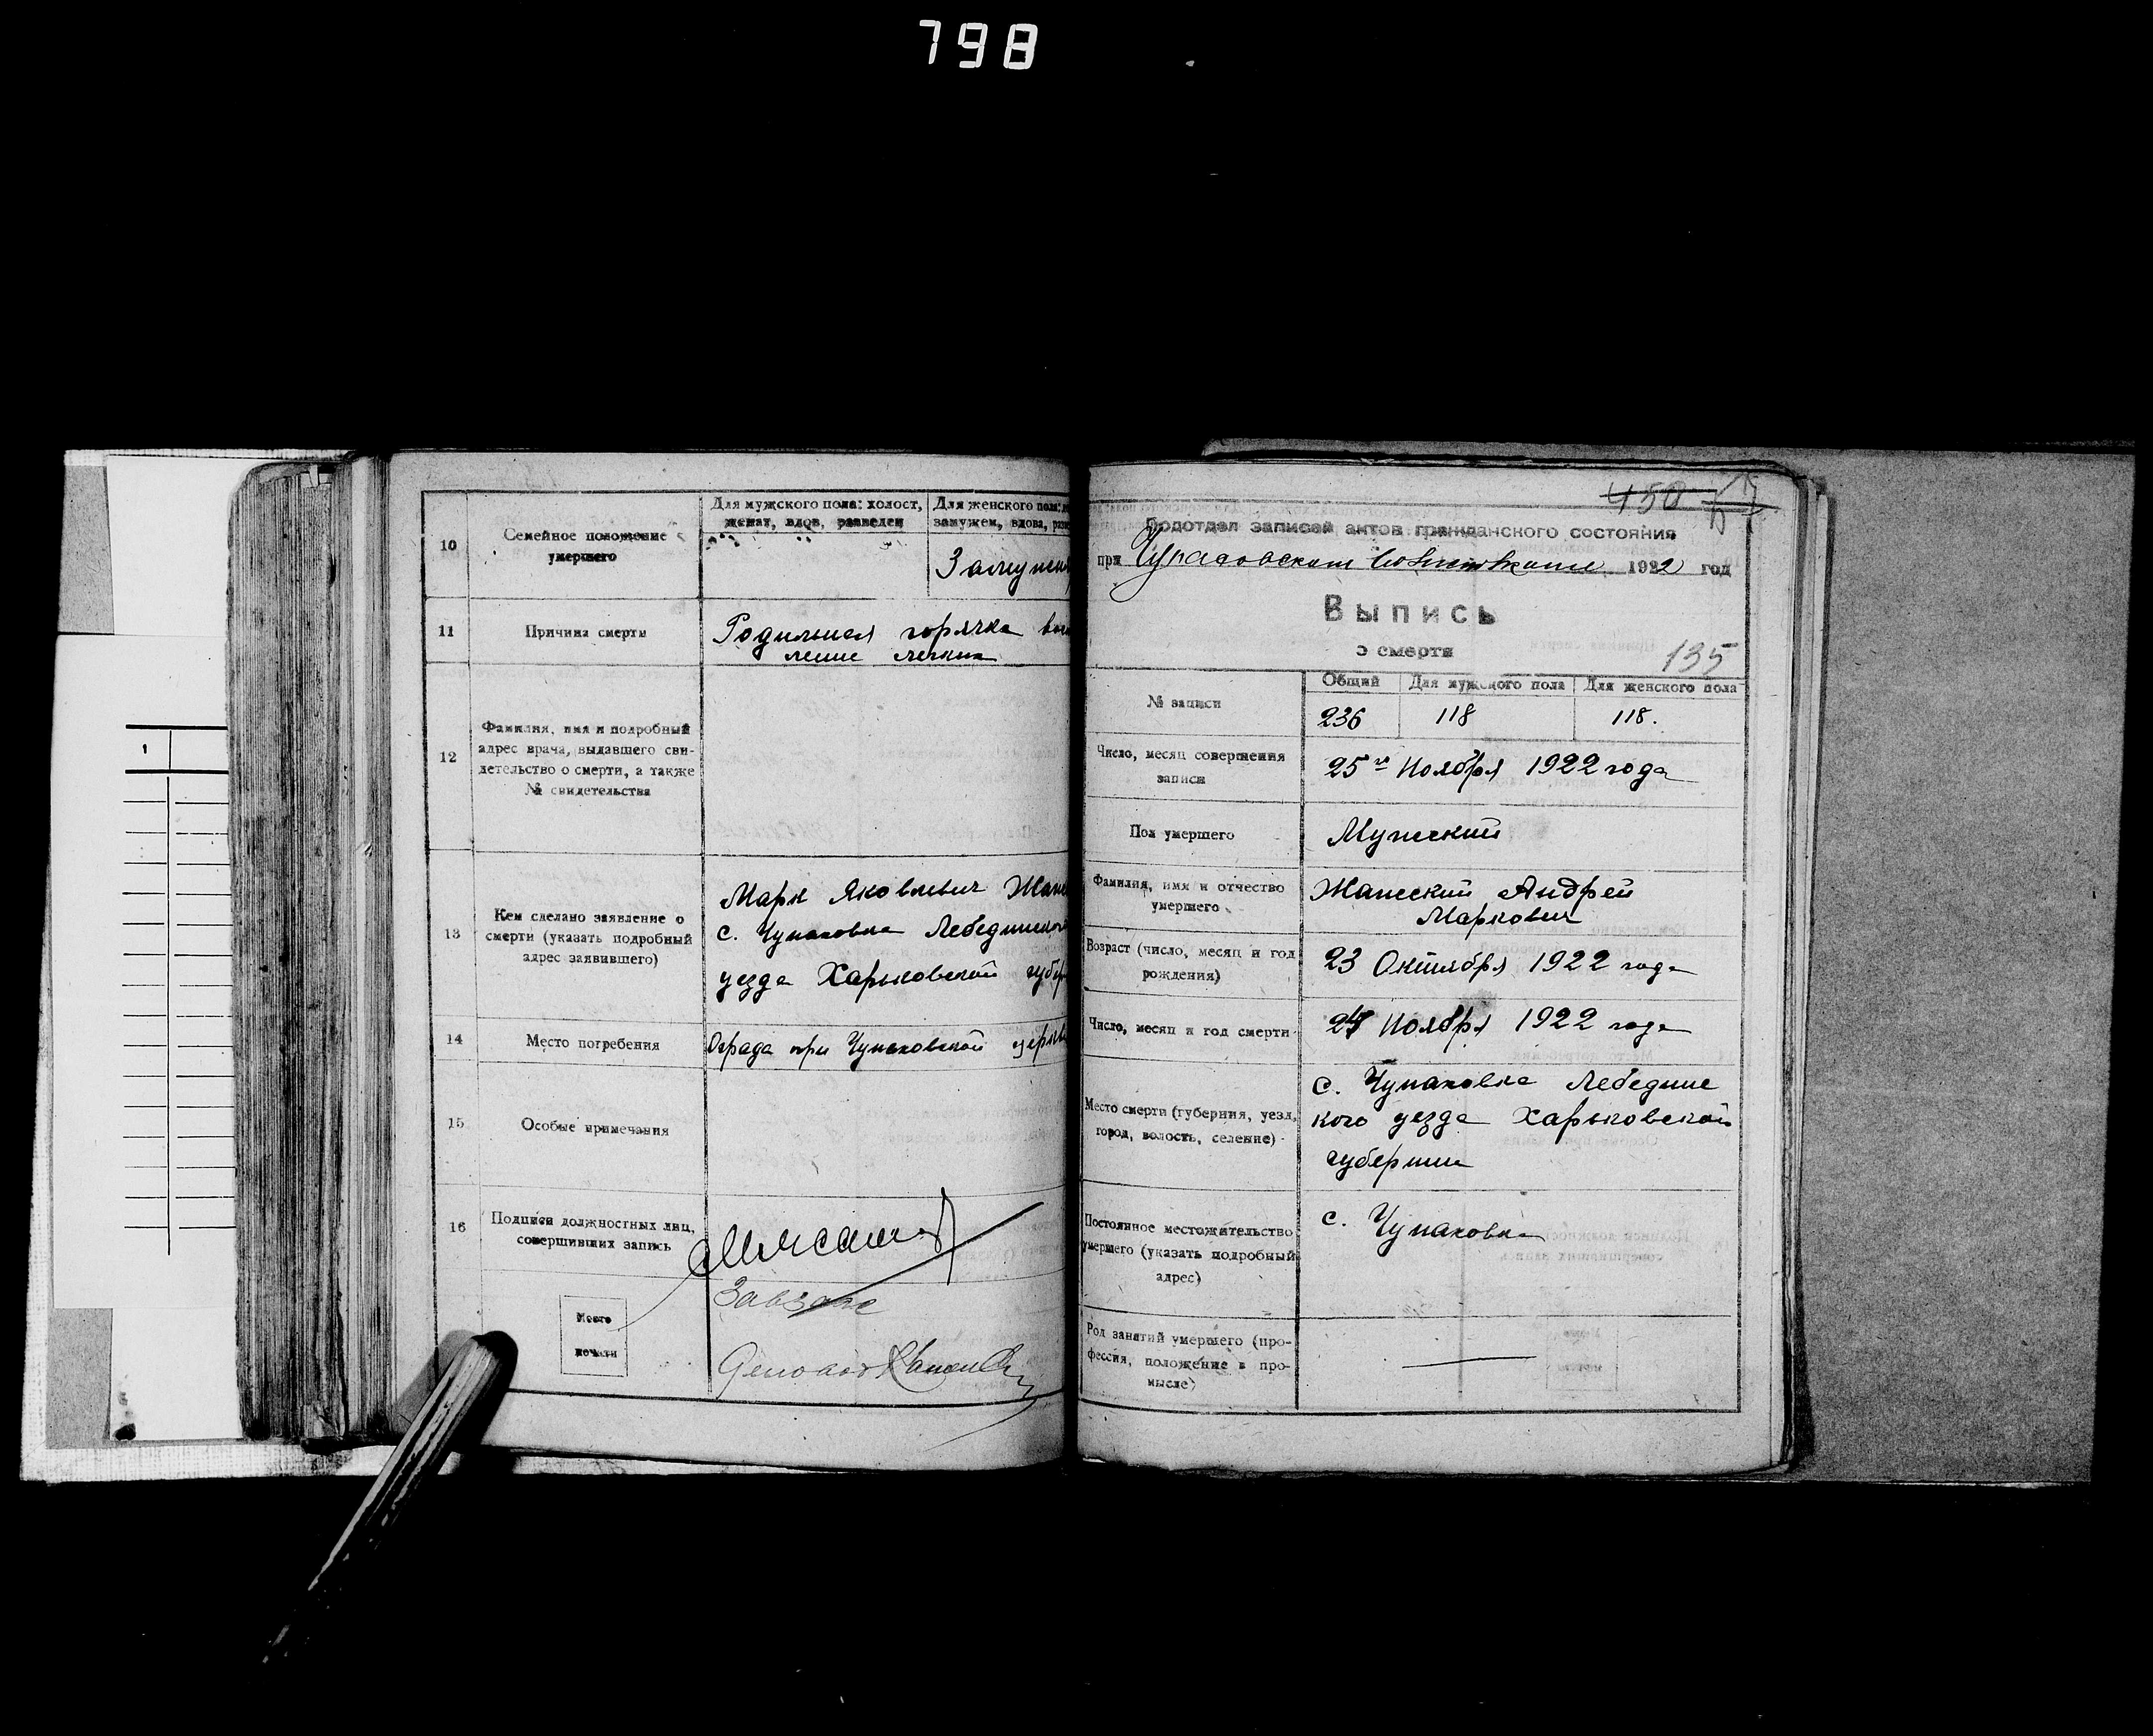 798
10
Семейное положение
умершего
Для мужского пола: холост,
женат, вдов, разведен
Для женского пола:
замужем, вдова,
Замужем
11
Причина смерти
Родильная горячка
ление легких
12
Фамилия, имя и подробный
адрес врача, выдавшего сви-
детельство о смерти, а также
№ свидетельства
13
Кем сделано заявление о
смерти (указать подробный
адрес заявившего)
Марк Яковлевич
с. Чупаховка Лебединского
уезда Харьковской губер
14
Место погребения
Ограда при Чупаховской церкви
15
Особые примечания
16
Подписи должностных лиц,
совершивших запись
Место
печати
Завзагс
450
Подотдел записей актов гражданского состояния
при 1922 год
Выпись
о смерти
135
№ записи
Общий
Для мужского пола
Для женского пола
236
118
118.
Число, месяц совершения
записи
25го Ноября 1922 года
Пол умершего
Мужский
Фамилия, имя и отчество
умершего
Андрей
Маркович
Возраст (число, месяц и год
рождения)
23 Октября 1922 года
Число, месяц и год смерти
24 Ноября 1922 года
Место смерти (губерния, уезд,
город, волость, селение)
с. Чупаховка Лебединс
кого уезда Харьковской
губернии
Постоянное местожительство
умершего (указать подробный
адрес)
с. Чупаховка
Род занятий умершего (про-
фессия, положение в про-
мысле)